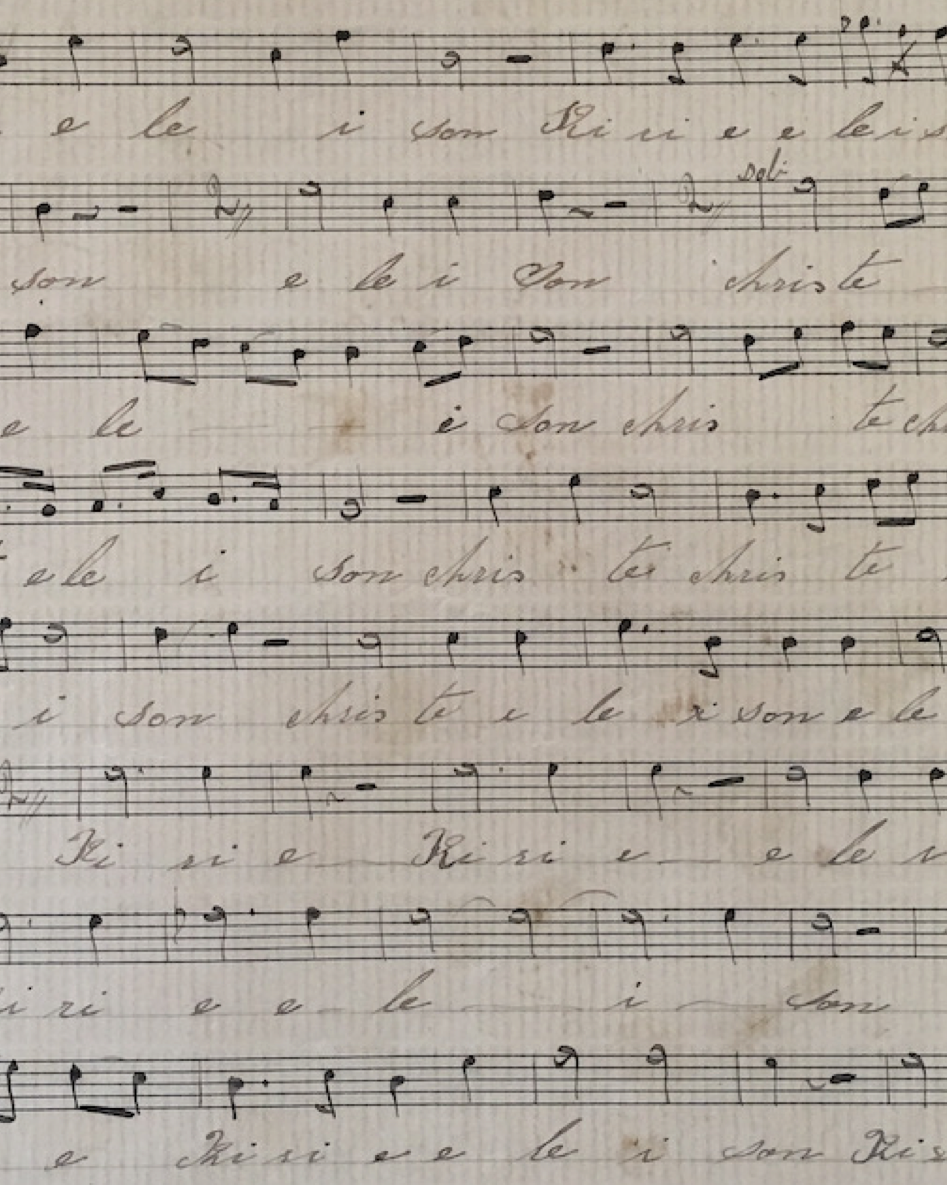 e le i son Ki ri e e le i s
son e le i Son soli christe
e le i son chris te ch
ele i son chris te chris te
i son chris te e le i son e le
Ki ri e Ki ri e e le
i ri e e le i son
e Ki ri e e le i son Ki